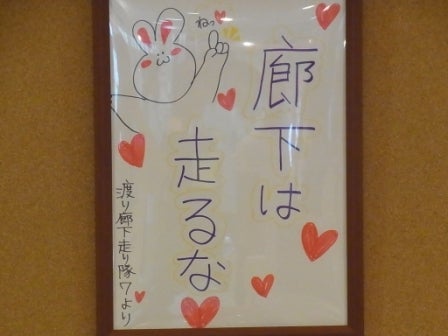 ねっ
廊下は
走るな
渡り廊下走り隊7より